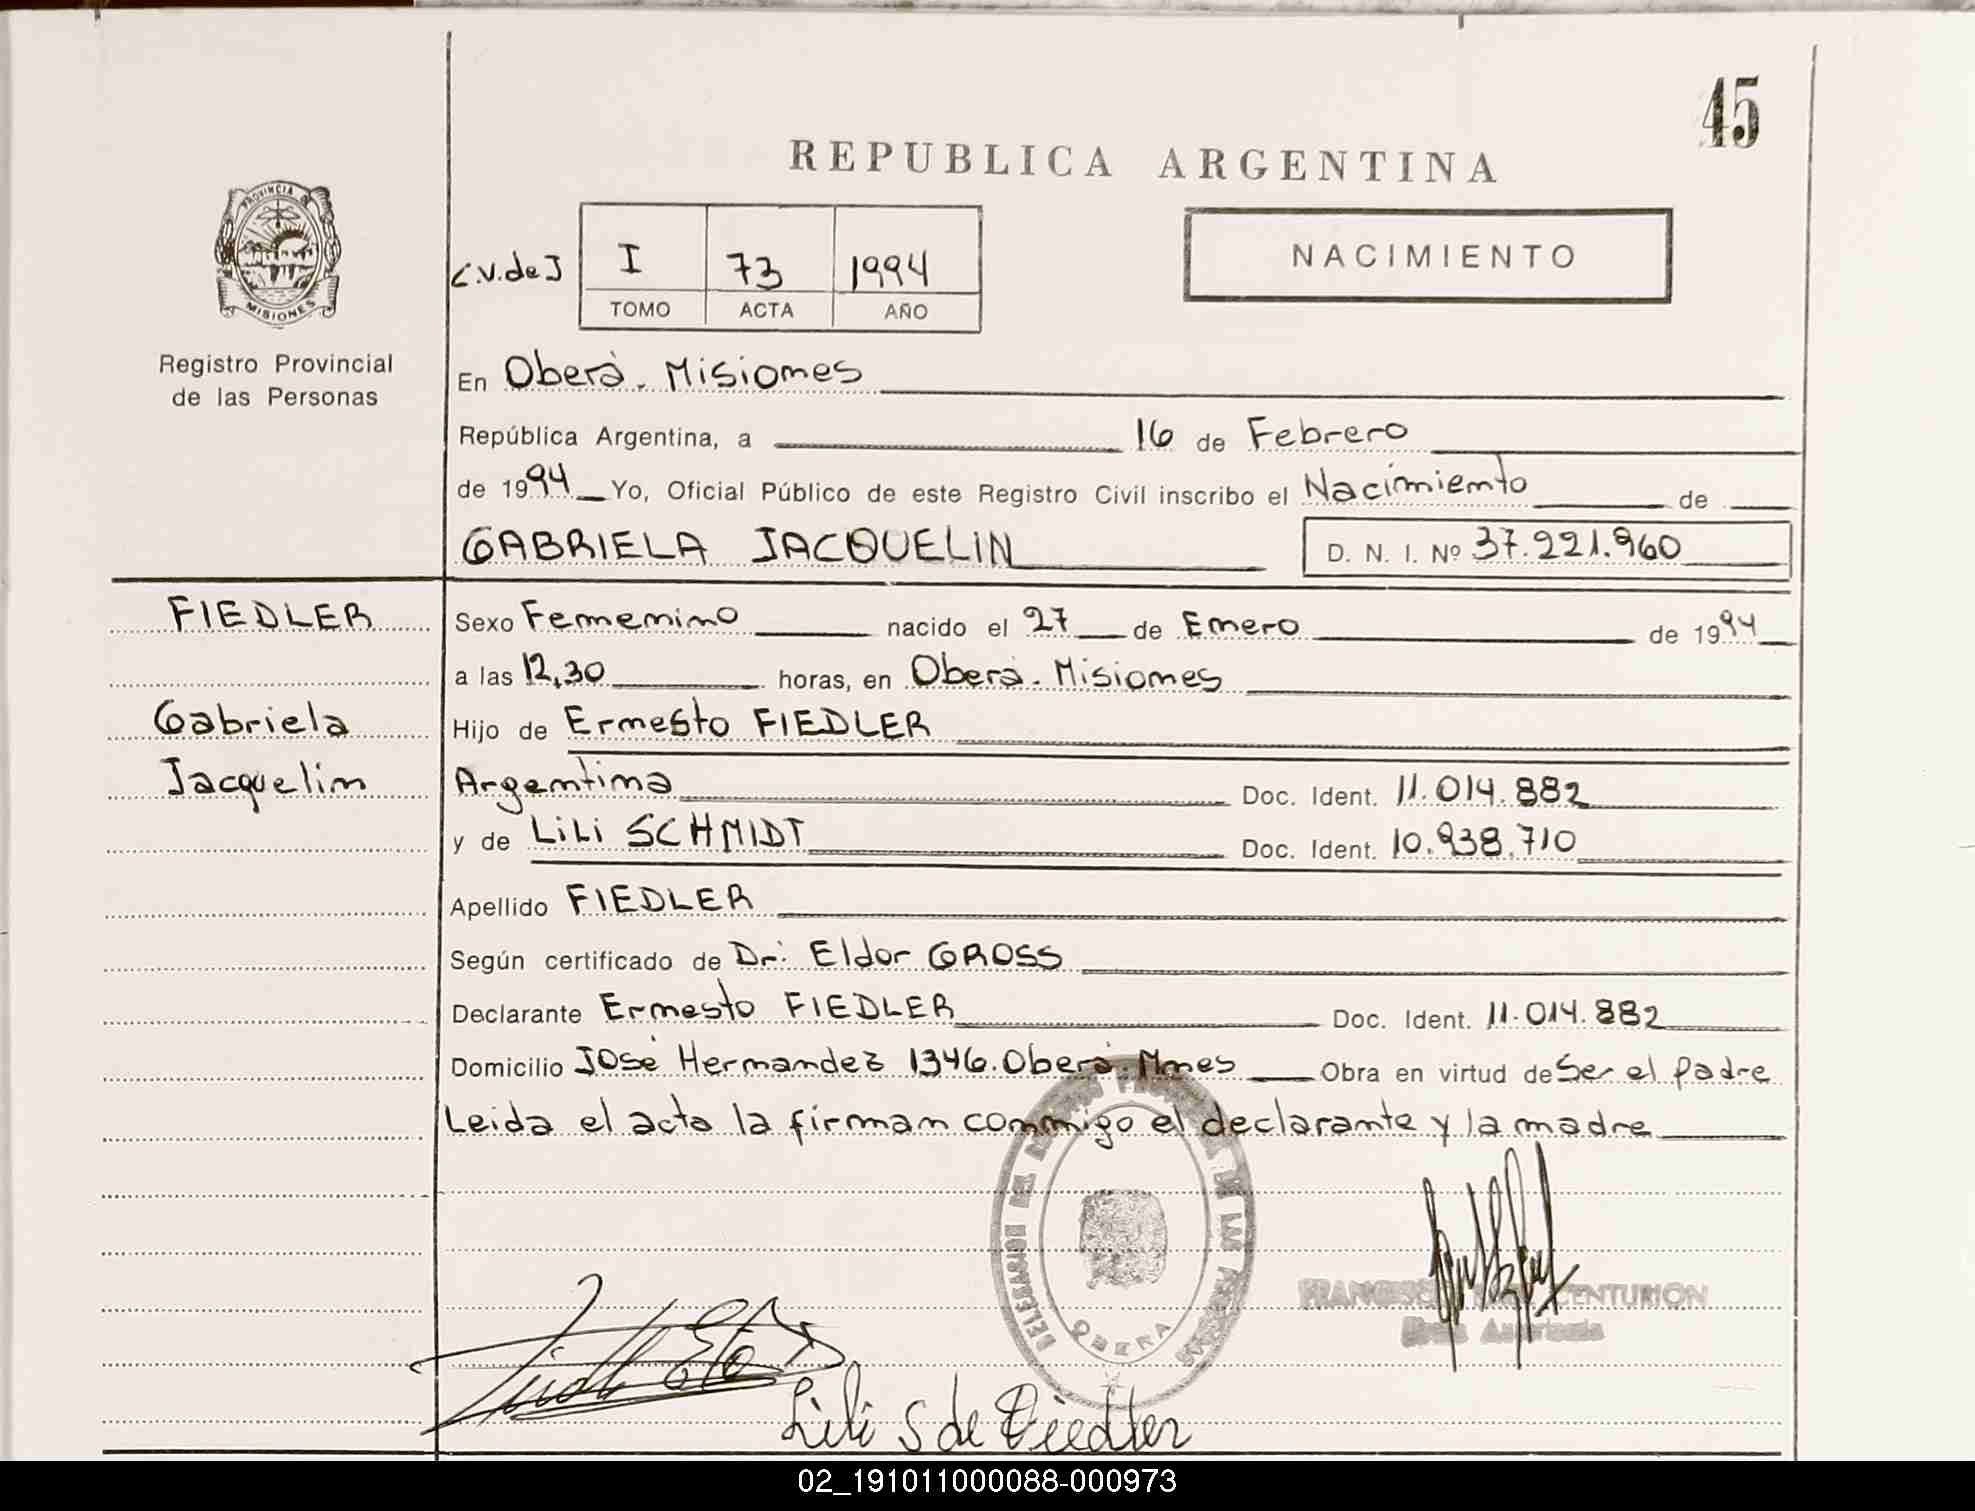 45
REPUBLICA ARGENTINA
PROVINCIA DE
MISIONES
Registro Provincial
de las Personas
C.V. de J
I 73 1994
TOMO ACTA AÑO
NACIMIENTO
En Oberá. Misiones
República Argentina, a 16 de Febrero
de 1994 Yo, Oficial Público de este Registro Civil inscribo el Nacimiento de
GABRIELA JACQUELIN D. N. I. Nº 37.221.960
FIEDLER
Gabriela
Jacquelin
Sexo Femenino nacido el 27 de Enero de 1994
a las 12,30 horas, en Oberá. Misiones
Hijo de Ernesto FIEDLER
Argentina Doc. Ident. 11.014.882
y de LiLi SCHMIDT Doc. Ident. 10.938.710
Apellido FIEDLER
Según certificado de Dr: Eldor GROSS
Declarante Ernesto FIEDLER Doc. Ident. 11.014.882
Domicilio José Hernandez 1346. Oberá. Mnes Obra en virtud de Ser el padre
Leida el acta la firman conmigo el declarante y la madre
DELEGACION DEL REGISTRO PROVINCIAL DE LAS PERSONAS
OBERA
CENTURION
Lili S de Fiedler
02_191011000088-000973